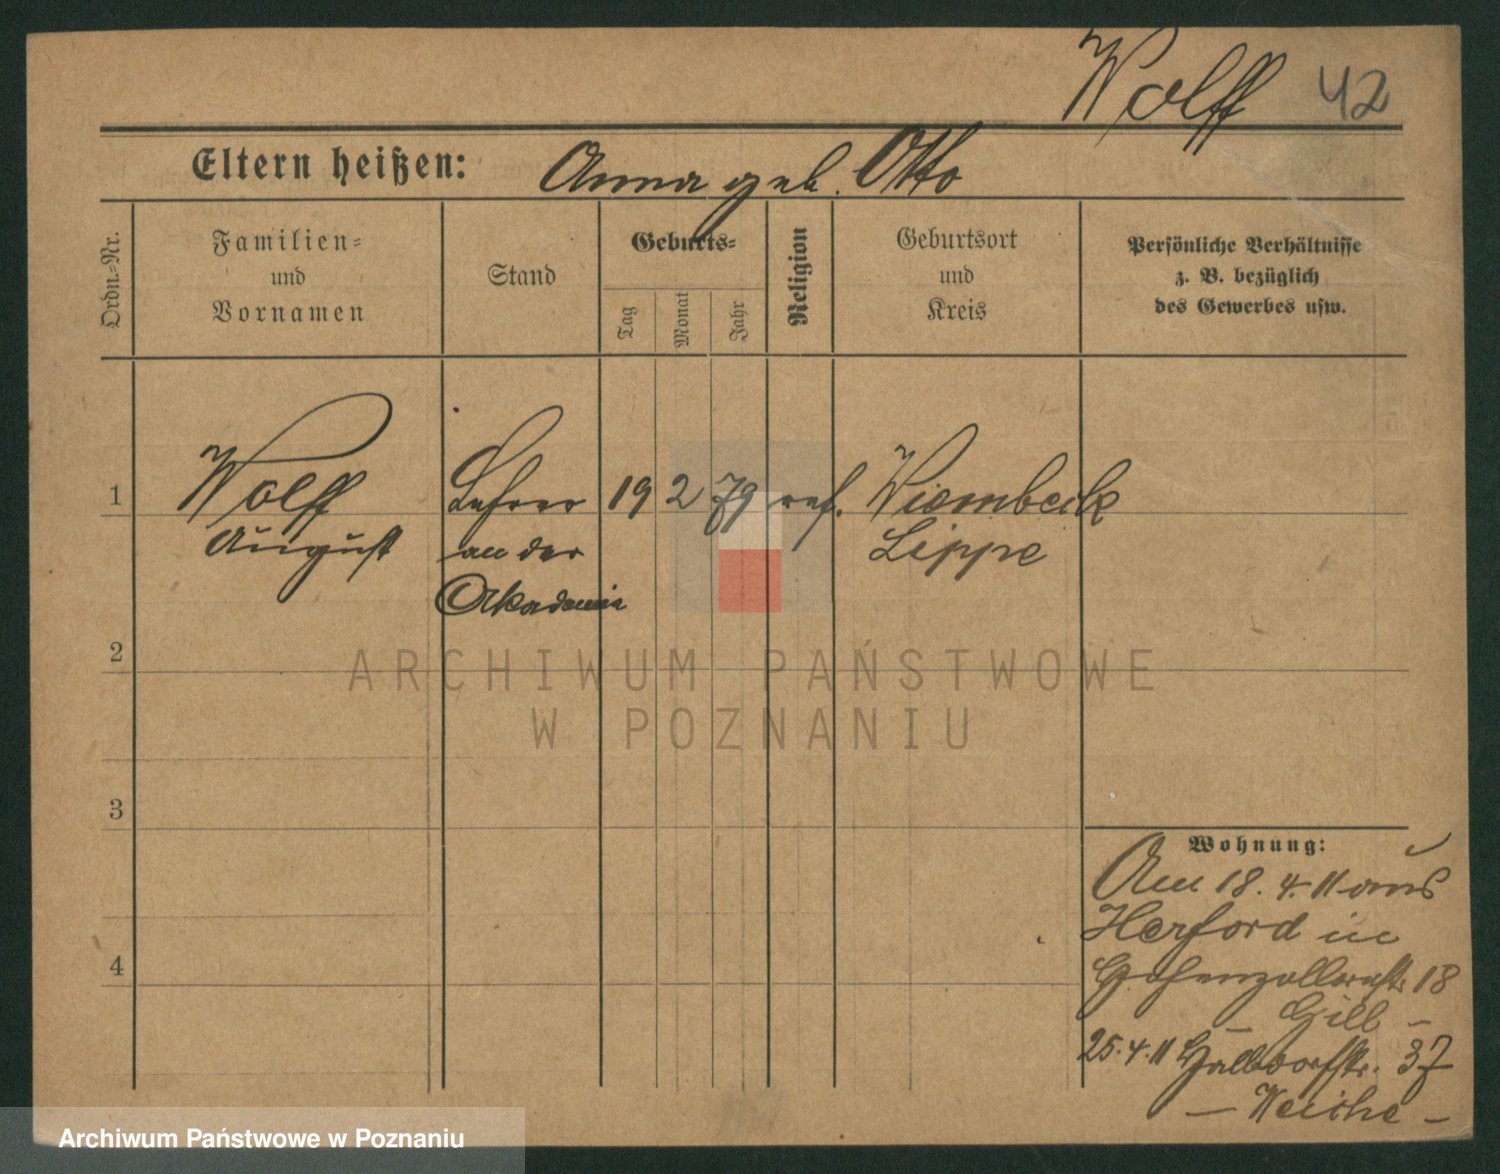 Wolff 42
Eltern heißen: Anna geb. Otto
Ordn.=Nr.
Familien=
und
Vornamen
Stand
Geburts=
Tag
Monat
Jahr
Religion
Geburtsort
und
Kreis
Persönliche Verhältnisse
z. B. bezüglich
des Gewerbes usw.
1 Wolff Lehrer 19 2 79 ref. Wiembeck
August an der Lippe
Akademie
2
3
4
Wohnung:
Am 18. 4. 11 aus
Herford in
Hohenzollernstr. 18
Hill -
25. 4. 11 Halbdorfstr. 37
- Weiche -
ARCHIWUM PAŃSTWOWE
W POZNANIU
Archiwum Państwowe w Poznaniu